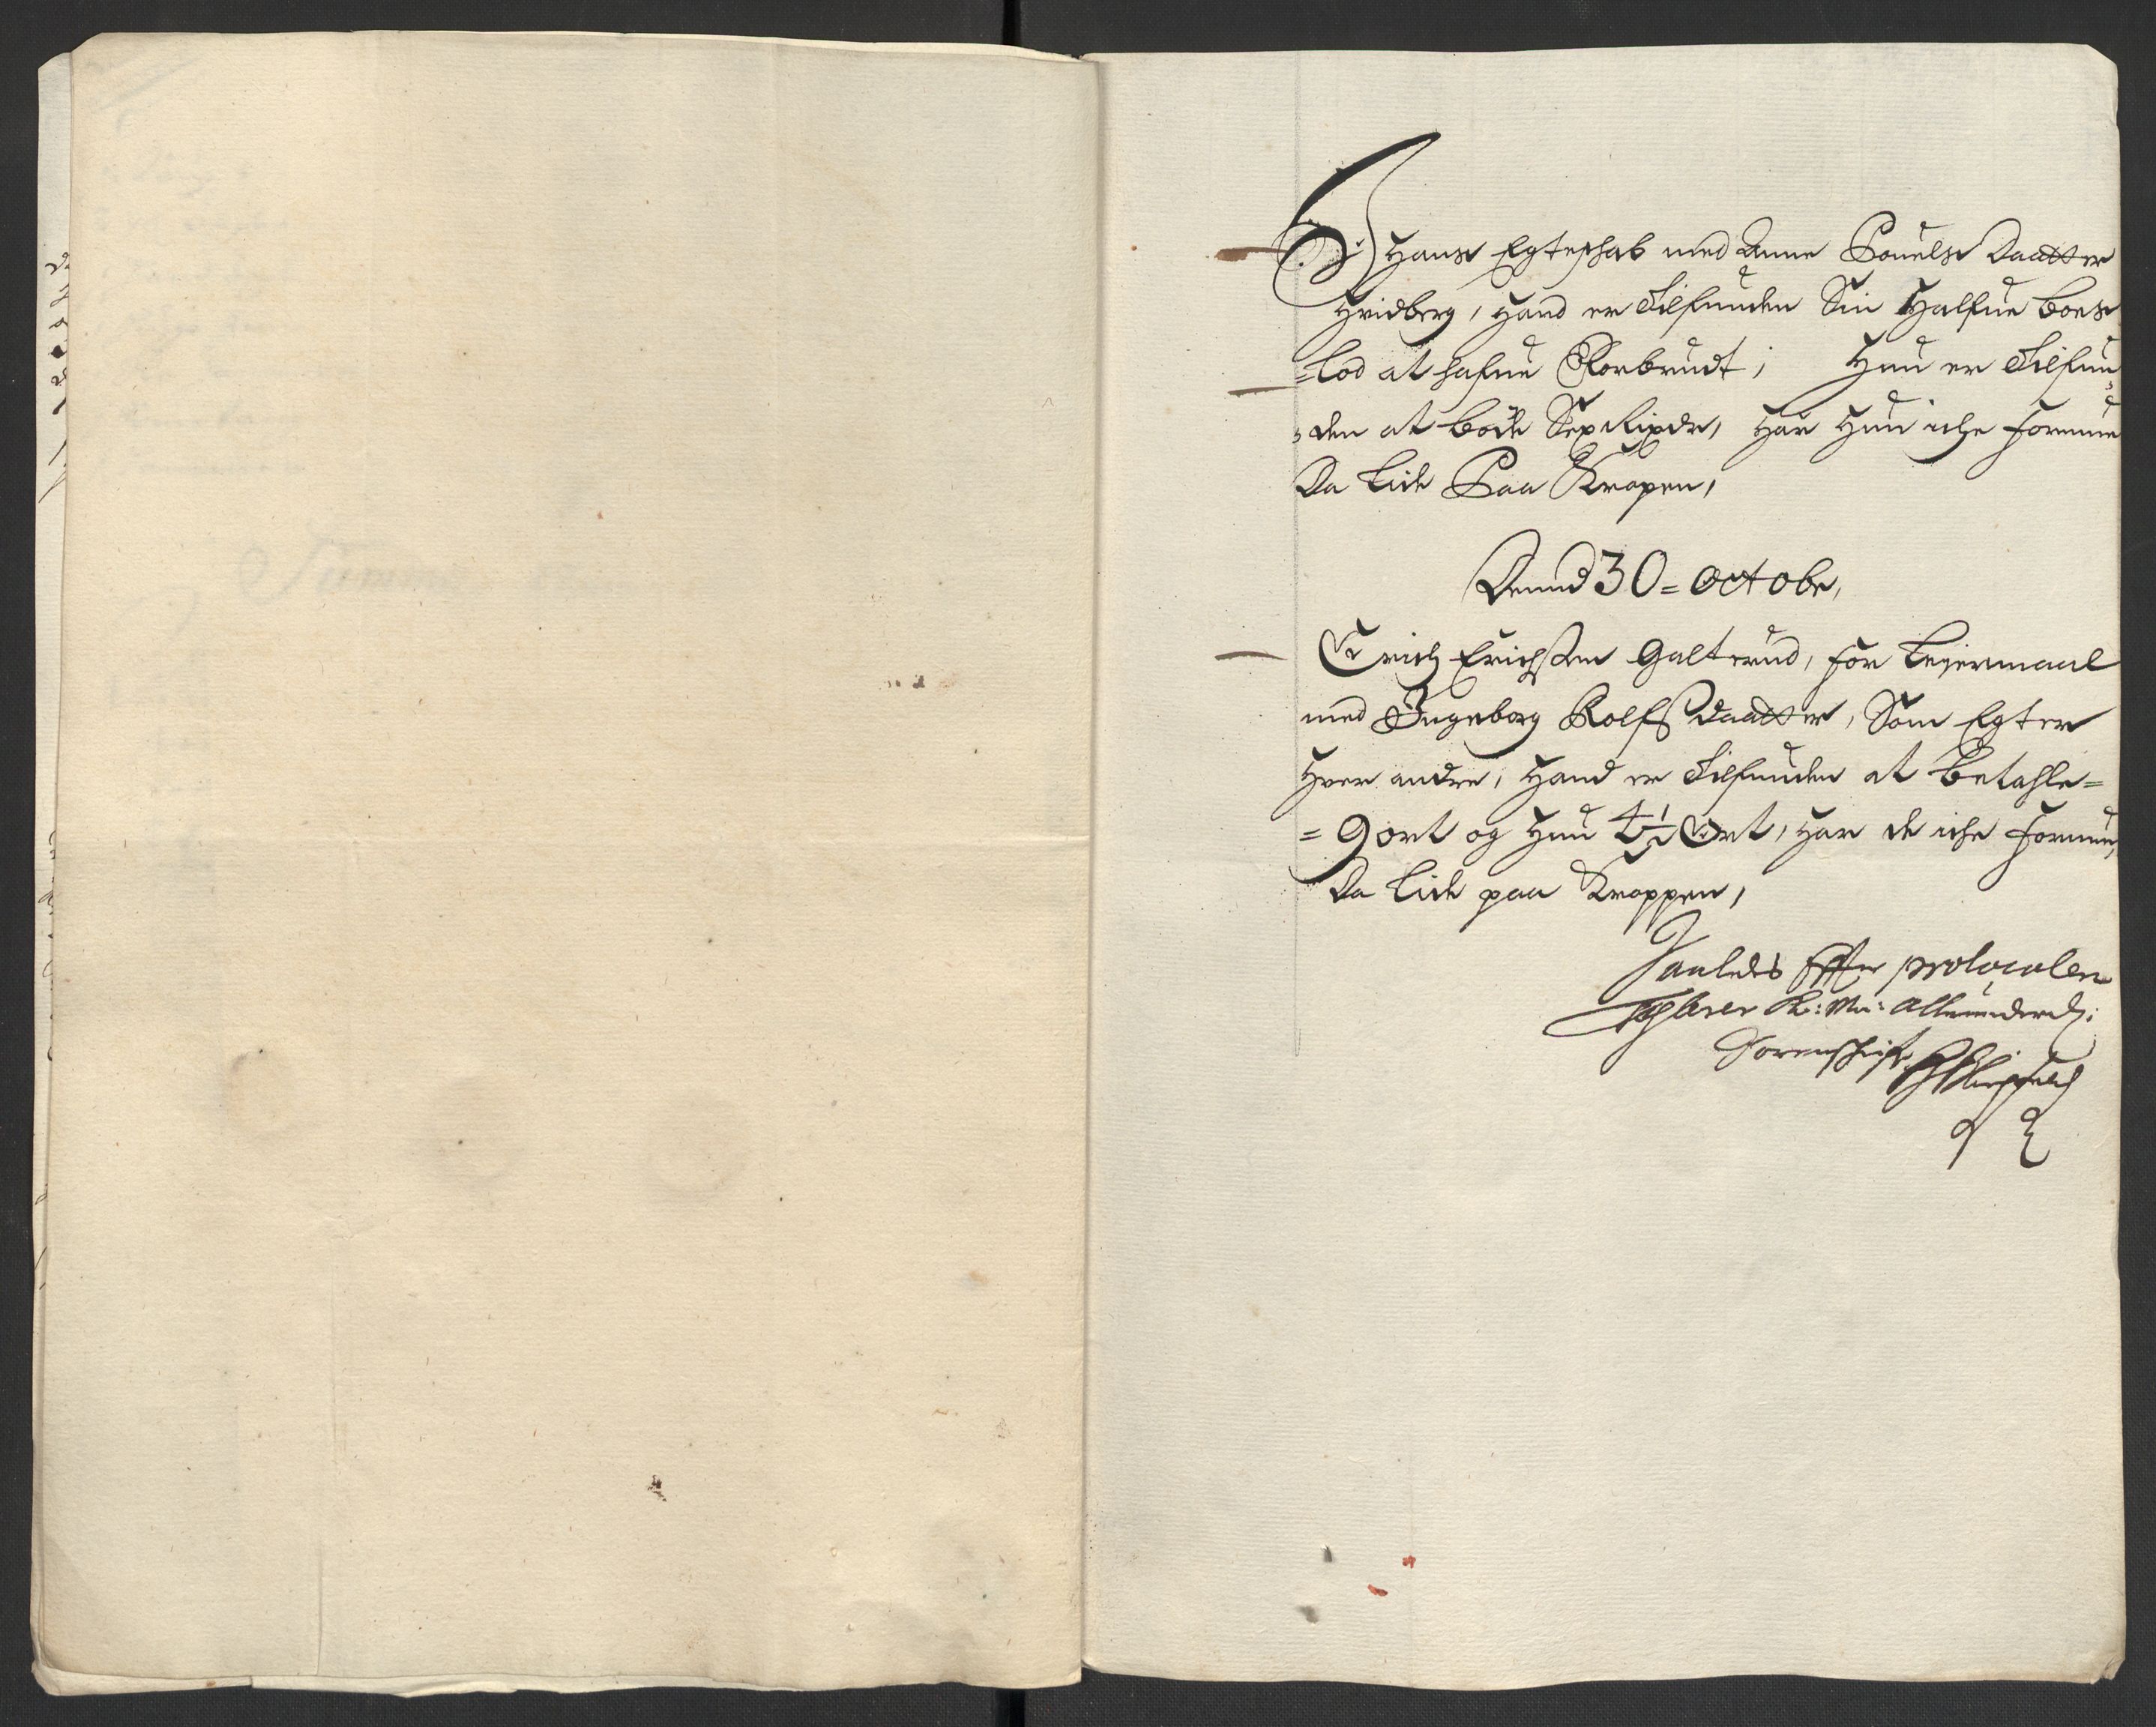 I Hans Egteskab med Anne Pouels Daatter
Hvidberg, Hand er Tilfunden Sin Halfue Boes
=Lod at hafue Forbrudt; Hun er Tilfun
den at bøde Sex Rixdr, Har Hun iche formue
Da Lide Paa Kropen,
Dennd 30= Octobr,
Erich Erichsen Galterud, for Leyermaal
med Ingeborg Rolfs daatter, Som Egter
Hver andre, Hand er Tilfunden at Betahle=
=9 ort og Hun 4½ Ort, Har de iche formue,
Da Lide paa Kroppen,
Saaledes Effter protocolen
K: M: Allerunderd:
Sorenschrifr